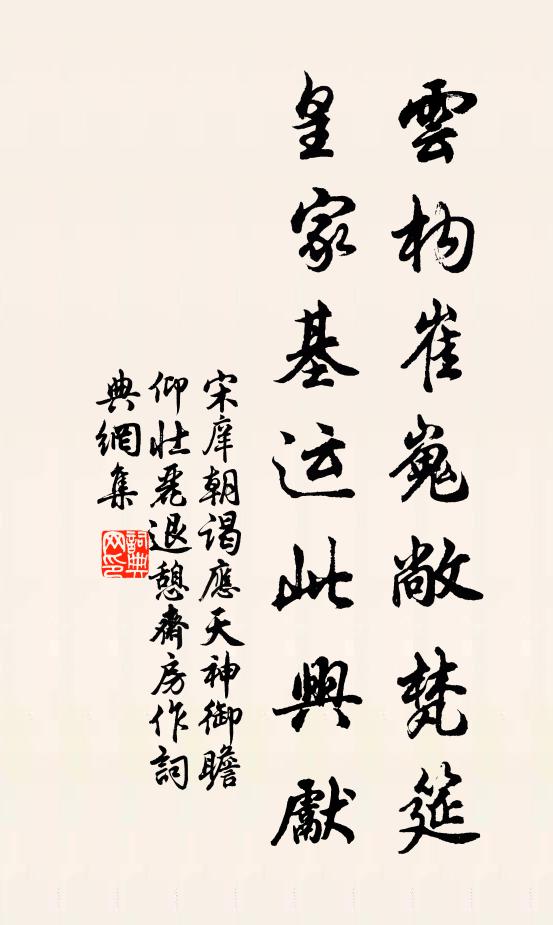 雲构崔嵬敞梵筵
皇家基运此興獻
宋庠朝谒應天神御瞻
仰壮麗退憩齋房作詞
典網集
詞典
网印